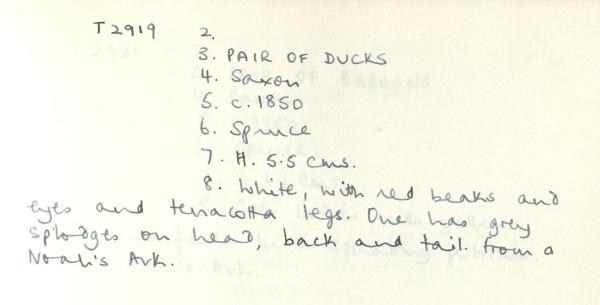 T2919 2.
3. PAIR OF DUCKS
4. Saxon
5. c.1850
6. Spruce
7. H. 5.5 cms.
8. White, with red beaks and
eyes and terracotta legs. One has grey
splodges on head, back and tail. From a
Noah's Ark.